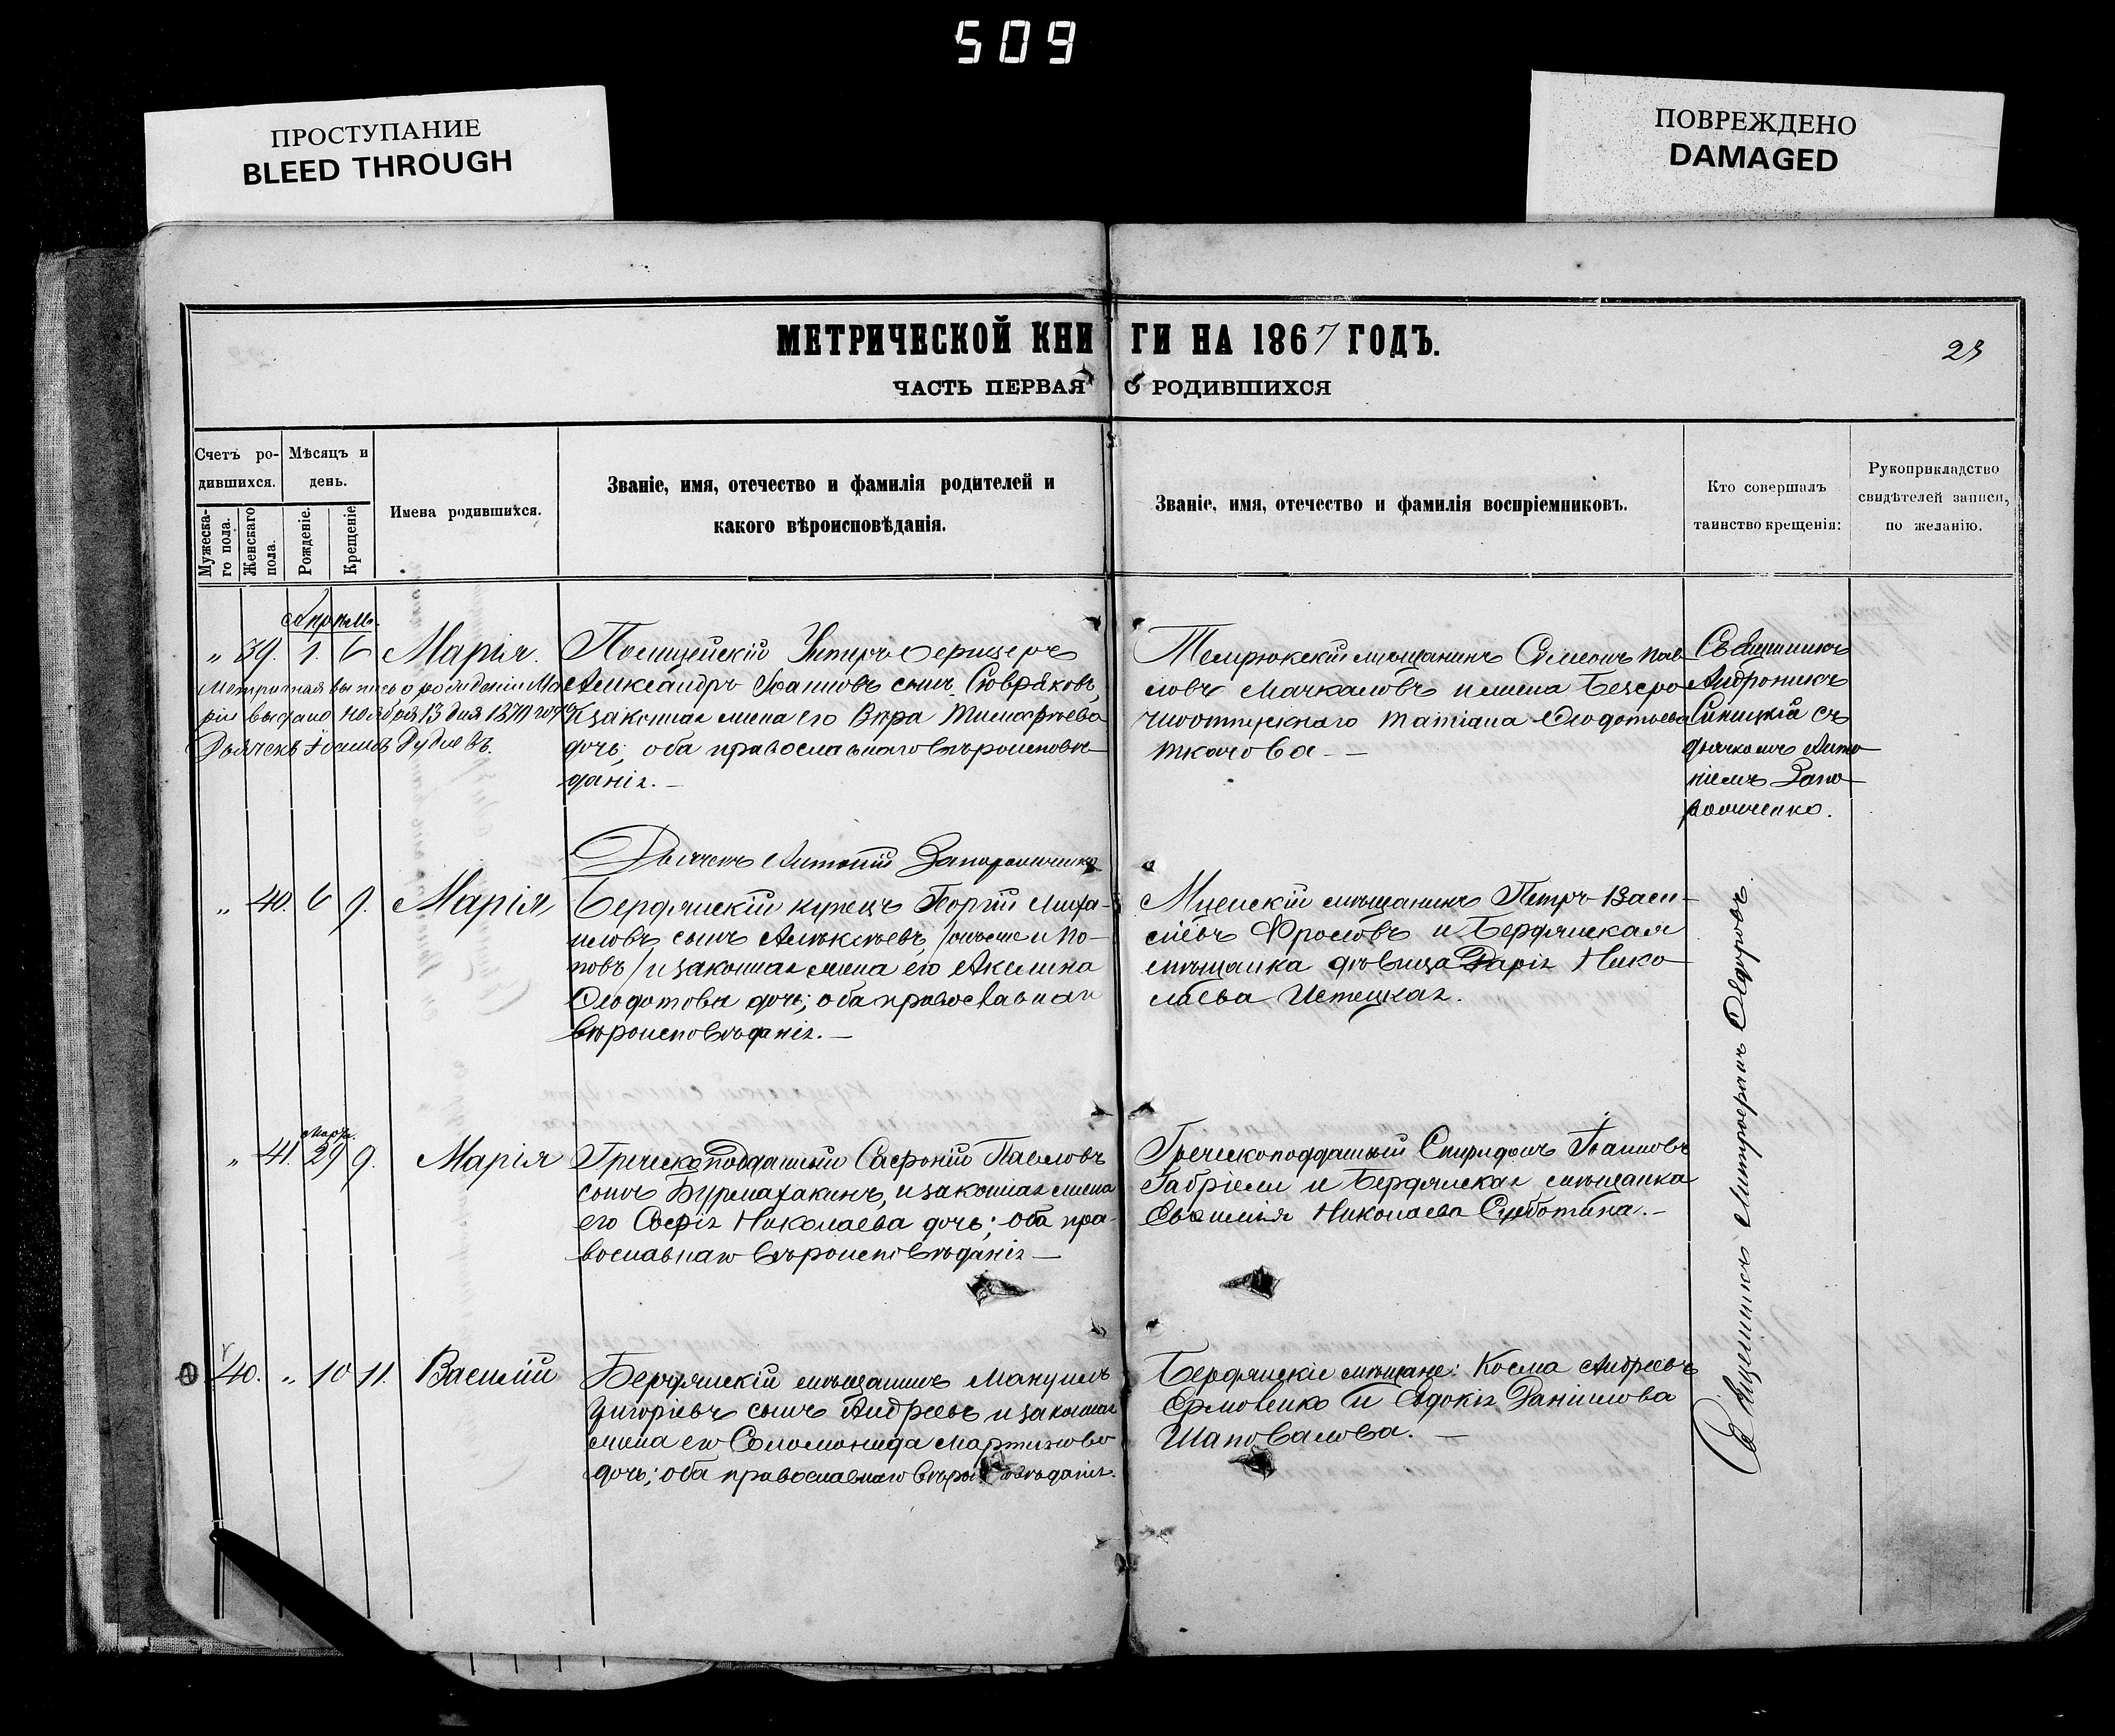 509
ПРОСТУПАНИЕ
BLEED THROUGH
ПОВРЕЖДЕНО
DAMAGED
МЕТРИЧЕСКОЙ КНИГИ НА 1867 ГОДЪ.
23
ЧАСТЬ ПЕРВАЯ О РОДИВШИХСЯ
Счетъ ро-
дившихся.
Мужеска-
го пола.
Женскаго
пола.
Мѣсяцъ и
день.
Рожденіе.
Крещеніе.
Имена родившихся.
Званіе, имя, отечество и фамилія родителей и
какого вѣроисповѣданія.
Званіе, имя, отечество и фамилія воспріемниковъ.
Кто совершалъ
таинство крещенія:
Рукоприкладство
свидѣтелей записи,
по желанію.
Апрѣль.
„ 39. 1. 6 Марія.
Метричная выпись о рожденіи Ма
ріи выдано ноября 13 дня
Дьячекъ Іоаннъ
Полицейскій Унтеръ Офицеръ
Александръ Іоанновъ сынъ
и законная жена его Вѣра Тимофѣева
дочь; оба православнаго вѣроисповѣ-
данія. —
Темрюкскій мѣщанинъ Симеонъ Пав-
ловъ Мачкаловъ и жена безсро-
чноотпускнаго Татіана Ѳеодотьева
Ткачова — —
Священникъ
Андроникъ
Синицкій съ
дьячкомъ Анто-
ніемъ Запо-
рожченко.
Дьячекъ Антоній Запорожченко
„ 40. 6 9. Марія
Бердянскій купецъ Георгій Миха-
иловъ сынъ Алексѣевъ /онъже и По-
повъ/ и законная жена его Акилина
Ѳеодотова дочь; оба православнаго
вѣроисповѣданія. —
Мценскій мѣщанинъ Петръ Васи-
ліевъ Фроловъ и Бердянская
мѣщанка дѣвица Дарія Нико-
лаева
Марта.
„ 41. 29 9. Марія
Греческоподданный Сафроній Павловъ
сынъ Бурмахакинъ, и законная жена
его Софія Николаева дочь; оба пра-
вославнаго вѣроисповѣданія —
Греческоподданный Спиридонъ Іоанновъ
Габріели и Бердянская мѣщанка
Николаева Субботина. —
40. „ 10 11. Василій
Бердянскій мѣщанинъ Мануилъ
Григоріевъ сынъ Андреевъ и законная
жена его Соломонида Мартинова
дочь; оба православнаго вѣроисповѣданія.
Бердянскіе мѣщане: Косма Андреевъ
Ермоленко и Евдокія Даніилова
Шаповалова. —
Священникъ Митрофанъ Ѳедоровъ.